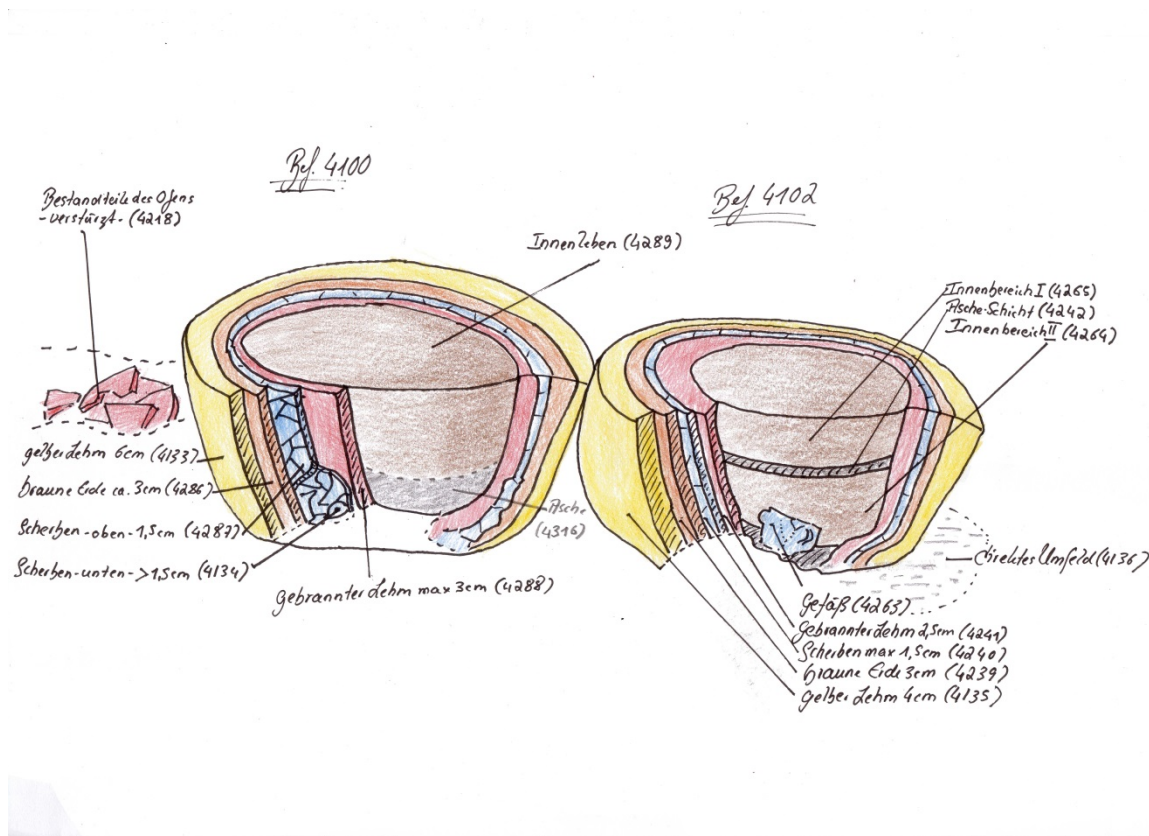 Bef. 4100
Bestandteile des Ofens
-verstürzt- (4218)
Innenleben (4289)
gelber Lehm 6cm (4133)
braune Erde ca. 3cm (4286)
Scherben-oben-1,5cm (4287)
Scherben-unten->1,5cm (4134)
gebrannter Lehm max 3cm (4288)
Asche
(4316)
Bef. 4102
Innenbereich I (4265)
Asche-Schicht (4242)
Innenbereich II (4264)
direktes Umfeld (4136)
Gefäß (4263)
gebrannter Lehm 2,5cm (4241)
Scherben max 1,5cm (4240)
braune Erde 3cm (4239)
gelber Lehm 4cm (4135)